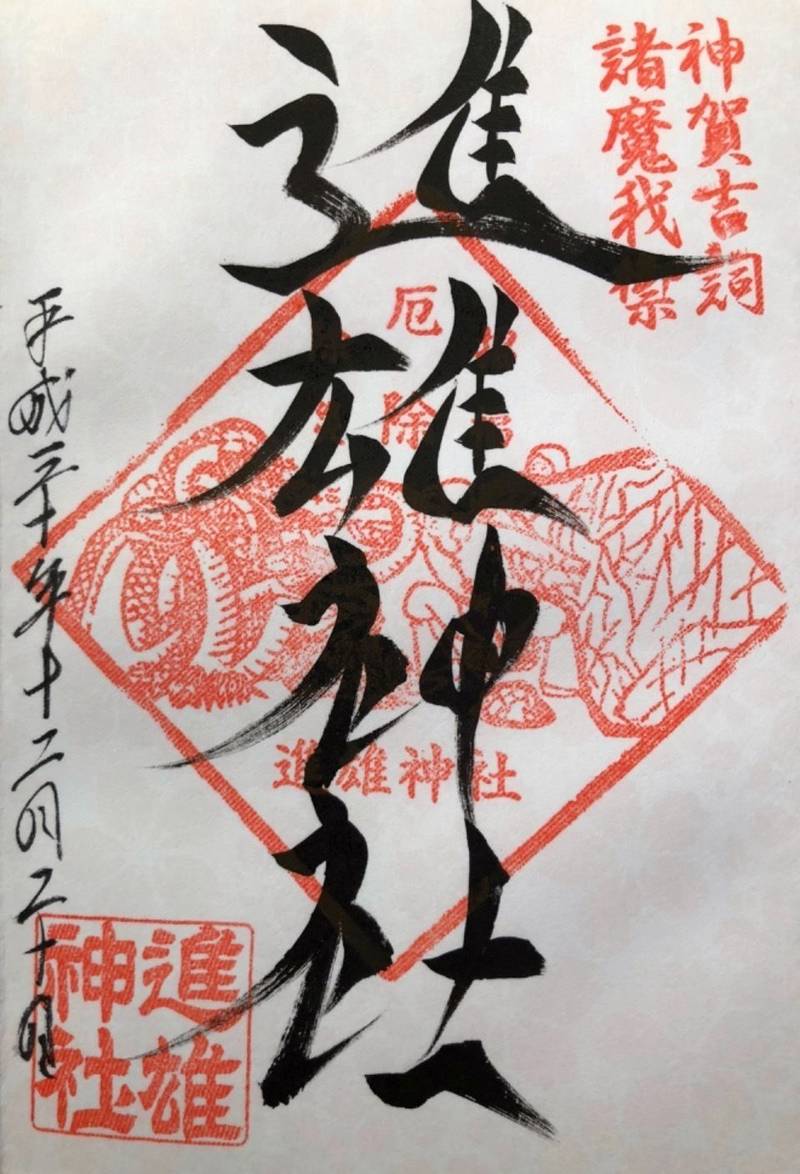 神賀吉詞
諸魔我祟
進雄神社
厄
除
進雄神社
平成三十年十二月二十日
進雄
神社